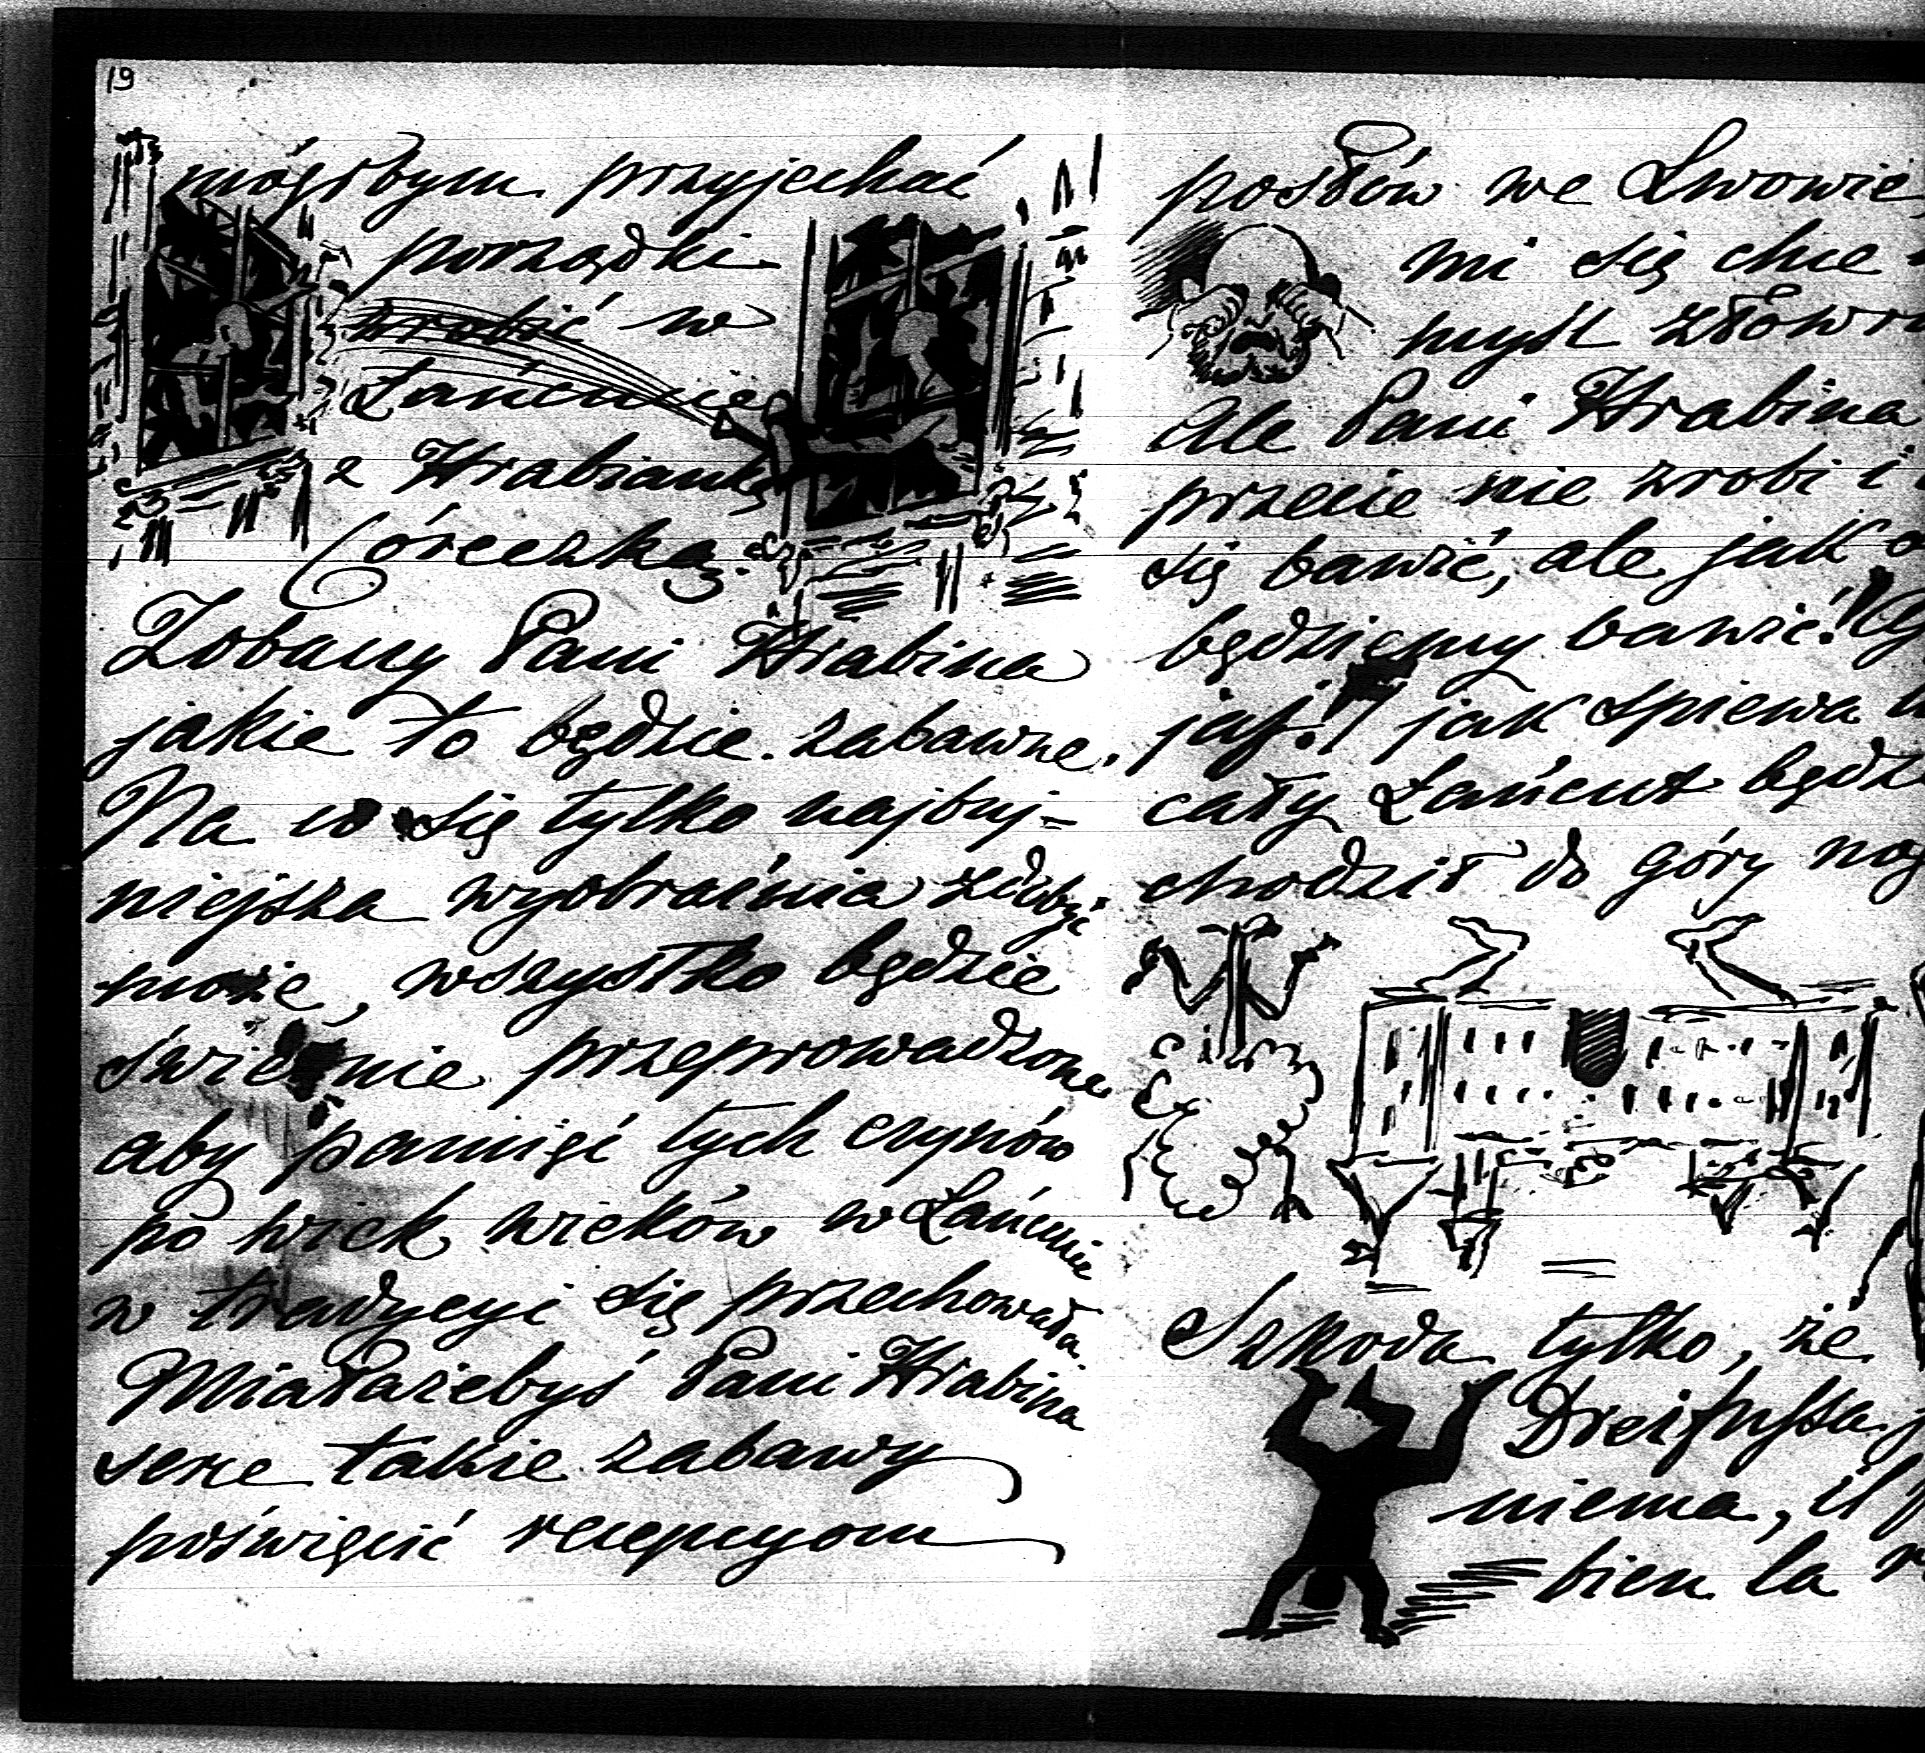 19
mógłbym przyjechać
porządki
zrobić w
Łańcucie
z Hrabianką
Córeczką.
Zobaczy Pani Hrabina
jakie to będzie zabawne.
Na co się tylko najbuj-
niejsza wyobraźnia zdobyć
może, wszystko będzie
świetnie przeprowadzone
aby pamięć tych czynów
po wiek wieków w Łańcucie
w tradycyi się przechowała.
Miałażebyś Pani Hrabina
serce takie zabawy
poświęcić recepcyom
posłów we Lwowie,
mi się chce
myśl złowr
Ale Pani Hrabina
przecie nie zrobi i
się bawić, ale jak
będziemy bawić!
jaj! jak śpiewa
cały Łańcut będz
chodził do góry nog
Szkoda tylko, że
Dreifussa
niema, il
bien la